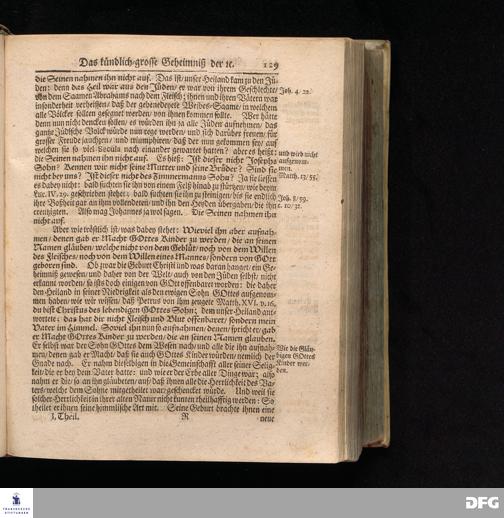 Das kündlich-grosse Geheimniß der ꝛc. 129
die Seinen nahmen ihn nicht auf. Das ist/ unser Heiland kam zu den Jü-
den: denn das Heil war aus dem Jüden/ er war von ihrem Geschlechte/
An dem Saamen Abrahams nach dem Fleisch; ihnen und ihren Vätern war
insonderheit verheissen/ daß der gebenedeyete Weibes-Saame/ in welchem
alle Völcker solten gesegnet werden/ von ihnen kommen solte. Wer hätte
denn nun nicht dencken sollen/ es würden ihn ja alle Jüden aufnehmen/ das
gantze Jüdische Volck würde nun rege werden/ und sich darüber freuen/ für
grosser Freude jauchzen/ und triumphiren/ daß der nun gekommen sey/ auf
welchen sie so viel Secula nach einander gewartet hatten? aber es heißt:
die Seinen nahmen ihn nicht auf. Es hieß: Ist dieser nicht Josephs
Sohn? Kennen wir nicht seine Mutter und seine Brüder? Sind sie
nicht bey uns? Ist dieser nicht des Zimmermanns Sohn? Ja sie liessen
es dabey nicht: bald suchten sie ihn von einem Felß hinab zu stürtzen/ wie beym
Luc. IV. 29. geschrieben stehet; bald suchten sie ihn zu steinigen/ bis sie endlich
ihre Boßheit gar an ihm vollendeten/ und ihn den Heyden übergaben/ die ihn
creutzigten. Also mag Johannes ja wol sagen. Die Seinen nahmen ihn
nicht auf.
Joh. 4. 22.
und wird nicht
aufgenom-
men.
Matth. 13/ 55.
Joh. 8/ 59.
c. 10/ 31.
Aber wie tröstlich ist/ was dabey stehet: Wieviel ihn aber aufnah-
men/ denen gab er Macht GOttes Kinder zu werden/ die an seinen
Namen gläuben/ welche nicht von dem Geblüt/ noch von dem Willen
des Fleisches/ noch von dem Willen eines Mannes/ sondern von GOtt
geboren sind. Ob zwar die Geburt Christi und was daran hanget/ ein Ge-
heimniß gewesen/ und daher von der Welt/ auch von den Jüden selbst/ nicht
erkannt worden/ so ists doch einigen von GOtt offenbaret worden: die daher
den Heiland in seiner Niedrigkeit als den ewigen Sohn GOttes aufgenom-
men haben/ wie wir wissen/ daß Petrus von ihm zeugete Matth. XVI. v. 16.
du bist Christus des lebendigen GOttes Sohn; dem unser Heiland ant-
wortete: das hat dir nicht Fleisch und Blut offenbaret/ sondern mein
Vater im Himmel. Soviel ihn nun so aufnahmen/ denen/ spricht er/ gab
er Macht GOttes Kinder zu werden/ die an seinen Namen glauben.
Er selbst war der Sohn GOttes dem Wesen nach/ und alle die ihn aufnah-
men/ denen gab er Macht/ daß sie auch GOttes Kinder würden/ nemlich der
Gnade nach. Er nahm dieselbigen in die Gemeinschafft aller seiner Selig-
keit/ die er bey dem Vater hatte: und wie er der Erbe aller Dinge war; also
nahm er die/ so an ihn gläubeten/ auf/ daß ihnen alle die Herrlichkeit des Va-
ters/ welche dem Sohne mitgetheilet war/ geschencket würde. Und weil sie
solcher Herrlichkeit in ihrer alten Natur nicht kunten theilhafftig werden: So
theilet er ihnen seine himmlische Art mit. Seine Geburt brachte ihnen eine
Wie die Gläu-
bigen GOttes
Kinder wer-
den.
I. Theil. R neue
FRANCKESCHE
STIFTUNGEN
DFG